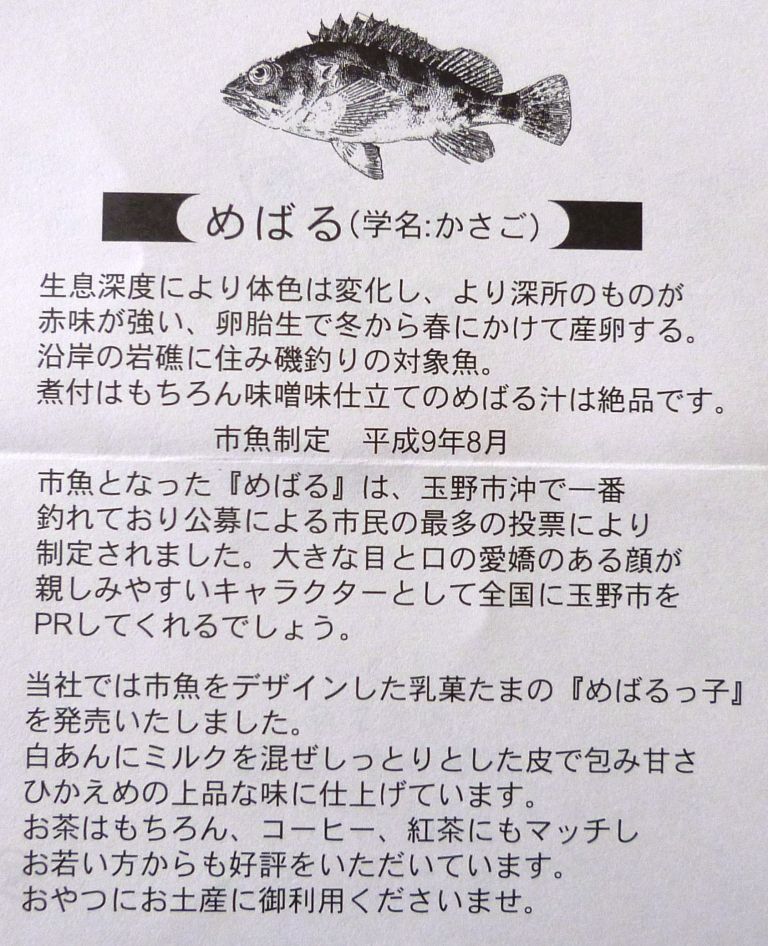 めばる(学名:かさご)
生息深度により体色は変化し、より深所のものが
赤味が強い、卵胎生で冬から春にかけて産卵する。
沿岸の岩礁に住み磯釣りの対象魚。
煮付はもちろん味噌味仕立てのめばる汁は絶品です。
市魚制定　平成9年8月
市魚となった『めばる』は、玉野市沖で一番
釣れており公募による市民の最多の投票により
制定されました。大きな目と口の愛嬌のある顔が
親しみやすいキャラクターとして全国に玉野市を
PRしてくれるでしょう。
当社では市魚をデザインした乳菓たまの『めばるっ子』
を発売いたしました。
白あんにミルクを混ぜしっとりとした皮で包み甘さ
ひかえめの上品な味に仕上げています。
お茶はもちろん、コーヒー、紅茶にもマッチし
お若い方からも好評をいただいています。
おやつにお土産に御利用くださいませ。